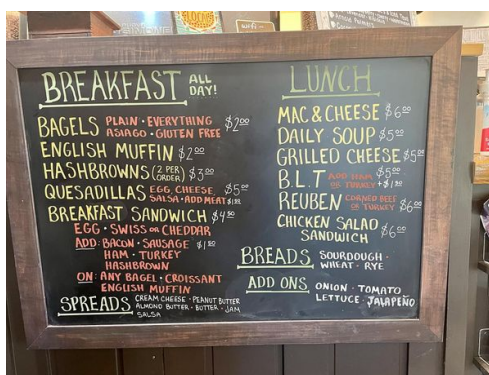 BREAKFAST ALL DAY!
BAGELS PLAIN · EVERYTHING $2.00
ASIAGO · GLUTEN FREE
ENGLISH MUFFIN $2.00
HASHBROWNS (2 PER ORDER) $3.00
QUESADILLAS EGG, CHEESE, $5.00
SALSA · ADD MEAT $1.50
BREAKFAST SANDWICH $4.50
EGG · SWISS OR CHEDDAR
ADD: BACON · SAUSAGE $1.50
HAM · TURKEY
HASHBROWN
ON: ANY BAGEL · CROISSANT
ENGLISH MUFFIN
SPREADS CREAM CHEESE · PEANUT BUTTER
ALMOND BUTTER · BUTTER · JAM
SALSA
LUNCH
MAC & CHEESE $6.00
DAILY SOUP $5.00
GRILLED CHEESE $5.00
B.L.T ADD HAM $5.00
OR TURKEY +$1.50
REUBEN CORNED BEEF
OR TURKEY $6.00
CHICKEN SALAD
SANDWICH $6.00
BREADS SOURDOUGH ·
WHEAT · RYE
ADD ONS ONION · TOMATO
LETTUCE · JALAPEÑO